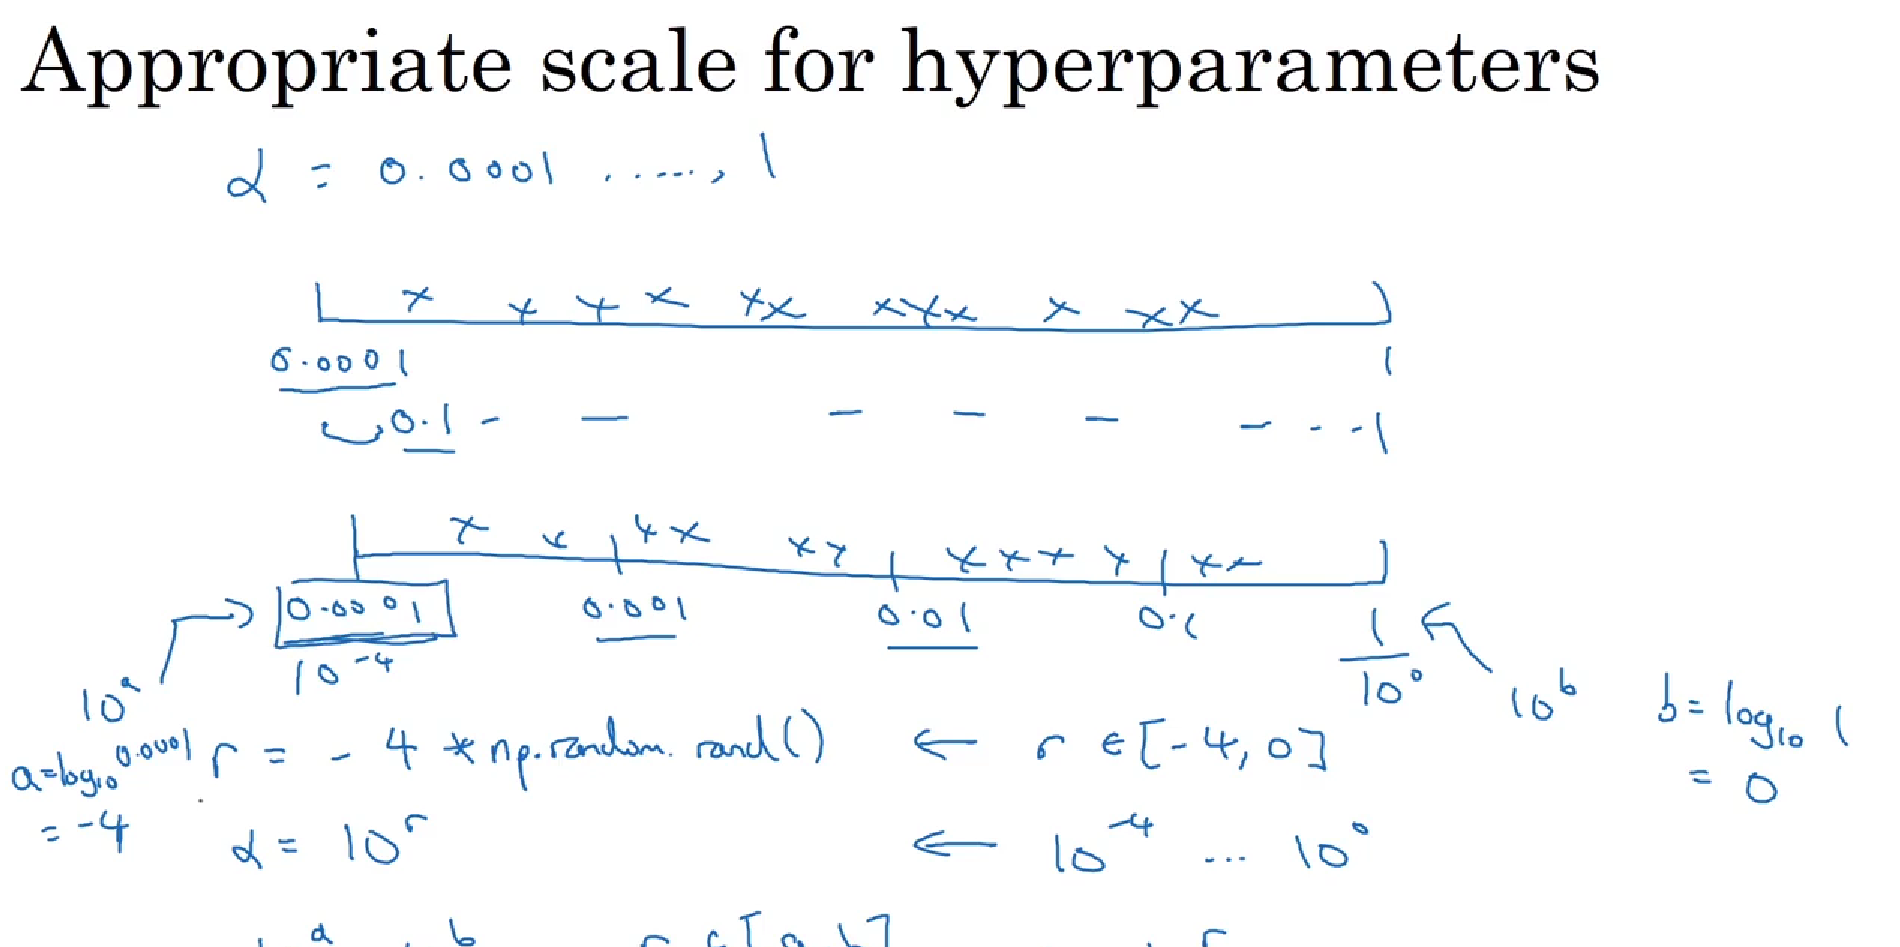 Appropriate scale for hyperparameters
α = 0.0001 ....., 1
x x x x xx xxx x xx
0.0001 1
0.1 - - - - - - - - 1
x x xx xx xxx x xx
0.0001 0.001 0.01 0.1 1
10^-4 10^0
10^a 10^b b = log₁₀ 1
a = log₁₀ 0.0001 r = -4 * np.random.rand() ← r ∈ [-4, 0] = 0
= -4 α = 10^r ← 10^-4 ... 10^0
a b r ∈ [a, b] r